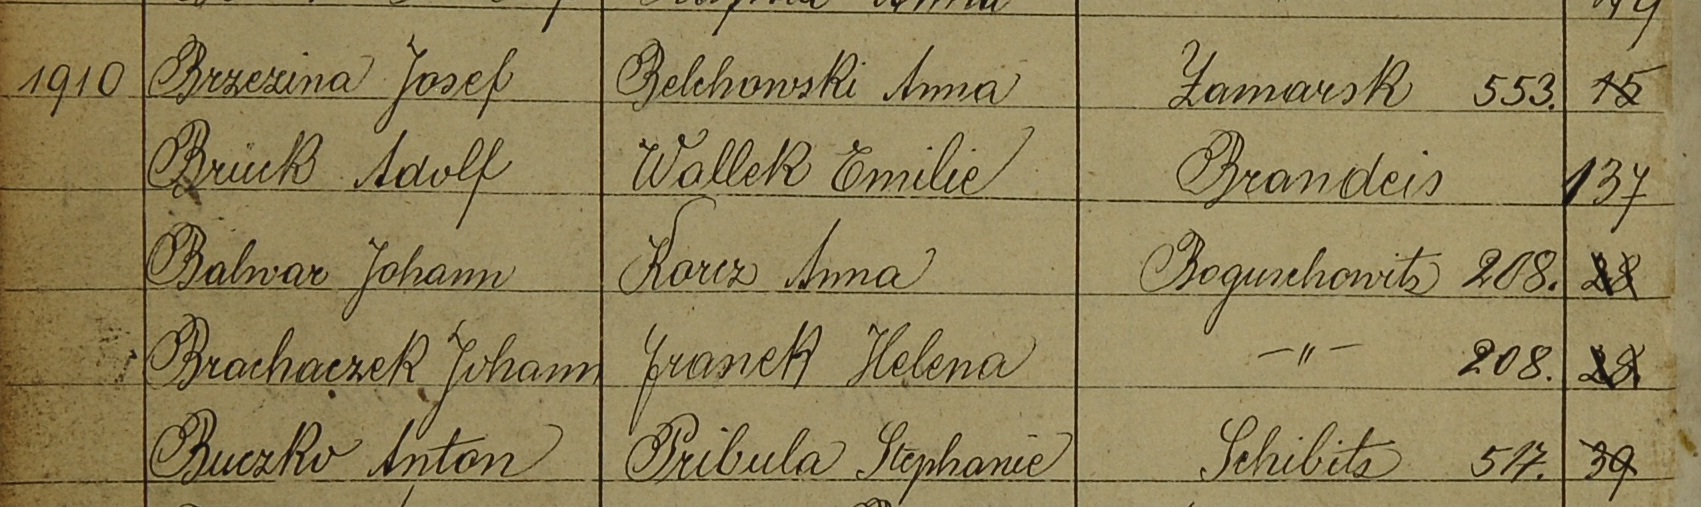 Anna
1910 Brzezina Josef Belchowski Anna Zamarsk 553. 15
Brück Adolf Wallek Emilie Brandeis 137
Balwar Johann Korcz Anna Boguschowitz 208. 28
Brachaczek Johann Franek Helena —〃— 208. 28.
Buczko Anton Pribula Stephanie Schibitz 517. 39